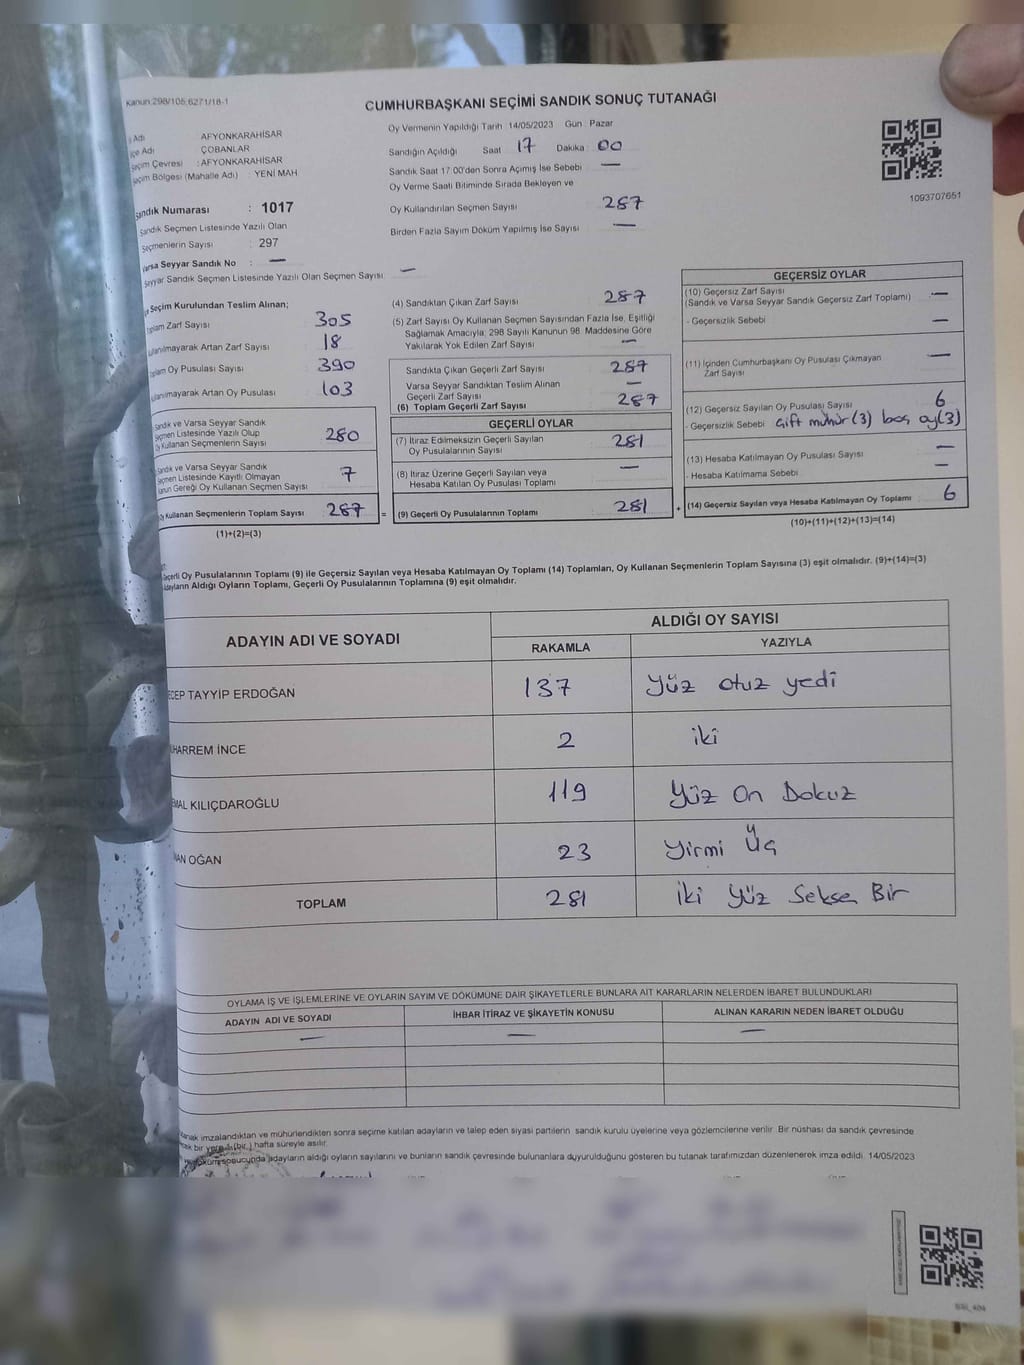 Kanun:298/105;6271/18-1
CUMHURBAŞKANI SEÇİMİ SANDIK SONUÇ TUTANAĞI
Adı AFYONKARAHİSAR
Adı ÇOBANLAR
Seçim Çevresi : AFYONKARAHİSAR
Seçim Bölgesi (Mahalle Adı) : YENİ MAH
Sandık Numarası : 1017
Sandık Seçmen Listesinde Yazılı Olan
Seçmenlerin Sayısı : 297
Varsa Seyyar Sandık No : —
Seyyar Sandık Seçmen Listesinde Yazılı Olan Seçmen Sayısı: —
Oy Vermenin Yapıldığı Tarih 14/05/2023 Gün Pazar
Sandığın Açıldığı Saat 17 Dakika : 00
Sandık Saat 17:00'den Sonra Açımış İse Sebebi —
Oy Verme Saati Bitiminde Sırada Bekleyen ve
Oy Kullandırılan Seçmen Sayısı 287
Birden Fazla Sayım Döküm Yapılmış İse Sayısı —
1093707651
Seçim Kurulundan Teslim Alınan;
Toplam Zarf Sayısı 305
Kullanılmayarak Artan Zarf Sayısı 18
Toplam Oy Pusulası Sayısı 390
Kullanılmayarak Artan Oy Pusulası 103
Sandık ve Varsa Seyyar Sandık
Seçmen Listesinde Yazılı Olup
Oy Kullanan Seçmenlerin Sayısı 280
Sandık ve Varsa Seyyar Sandık
Seçmen Listesinde Kayıtlı Olmayan
Kanun Gereği Oy Kullanan Seçmen Sayısı 7
Oy Kullanan Seçmenlerin Toplam Sayısı 287 =
(1)+(2)=(3)
(4) Sandıktan Çıkan Zarf Sayısı 287
(5) Zarf Sayısı Oy Kullanan Seçmen Sayısından Fazla İse, Eşitliği
Sağlamak Amacıyla; 298 Sayılı Kanunun 98. Maddesine Göre
Yakılarak Yok Edilen Zarf Sayısı —
Sandıkta Çıkan Geçerli Zarf Sayısı 287
Varsa Seyyar Sandıktan Teslim Alınan
Geçerli Zarf Sayısı —
(6) Toplam Geçerli Zarf Sayısı 287
GEÇERLİ OYLAR
(7) İtiraz Edilmeksizin Geçerli Sayılan
Oy Pusulalarının Sayısı 281
(8) İtiraz Üzerine Geçerli Sayılan veya
Hesaba Katılan Oy Pusulası Toplamı —
(9) Geçerli Oy Pusulalarının Toplamı 281 +
GEÇERSİZ OYLAR
(10) Geçersiz Zarf Sayısı
(Sandık ve Varsa Seyyar Sandık Geçersiz Zarf Toplamı) —
- Geçersizlik Sebebi —
(11) İçinden Cumhurbaşkanı Oy Pusulası Çıkmayan
Zarf Sayısı —
(12) Geçersiz Sayılan Oy Pusulası Sayısı 6
- Geçersizlik Sebebi çift mühür(3) boş oy(3)
(13) Hesaba Katılmayan Oy Pusulası Sayısı —
- Hesaba Katılmama Sebebi —
(14) Geçersiz Sayılan veya Hesaba Katılmayan Oy Toplamı 6
(10)+(11)+(12)+(13)=(14)
Geçerli Oy Pusulalarının Toplamı (9) ile Geçersiz Sayılan veya Hesaba Katılmayan Oy Toplamı (14) Toplamları, Oy Kullanan Seçmenlerin Toplam Sayısına (3) eşit olmalıdır. (9)+(14)=(3)
Adayların Aldığı Oyların Toplamı, Geçerli Oy Pusulalarının Toplamına (9) eşit olmalıdır.
ADAYIN ADI VE SOYADI
ALDIĞI OY SAYISI
RAKAMLA YAZIYLA
RECEP TAYYİP ERDOĞAN 137 Yüz otuz yedi
MUHARREM İNCE 2 iki
KEMAL KILIÇDAROĞLU 119 Yüz On Dokuz
SİNAN OĞAN 23 Yirmi Üç
TOPLAM 281 iki Yüz Sekse Bir
OYLAMA İŞ VE İŞLEMLERİNE VE OYLARIN SAYIM VE DÖKÜMÜNE DAİR ŞİKAYETLERLE BUNLARA AİT KARARLARIN NELERDEN İBARET BULUNDUKLARI
ADAYIN ADI VE SOYADI İHBAR İTİRAZ VE ŞİKAYETİN KONUSU ALINAN KARARIN NEDEN İBARET OLDUĞU
— — —
imzalandıktan ve mühürlendikten sonra seçime katılan adayların ve talep eden siyasi partilerin sandık kurulu üyelerine veya gözlemcilerine verilir. Bir nüshası da sandık çevresinde
bir yere 1 (bir) hafta süreyle asılır.
sonucunda adayların aldığı oyların sayılarını ve bunların sandık çevresinde bulunanlara duyurulduğunu gösteren bu tutanak tarafımızdan düzenlenerek imza edildi. 14/05/2023